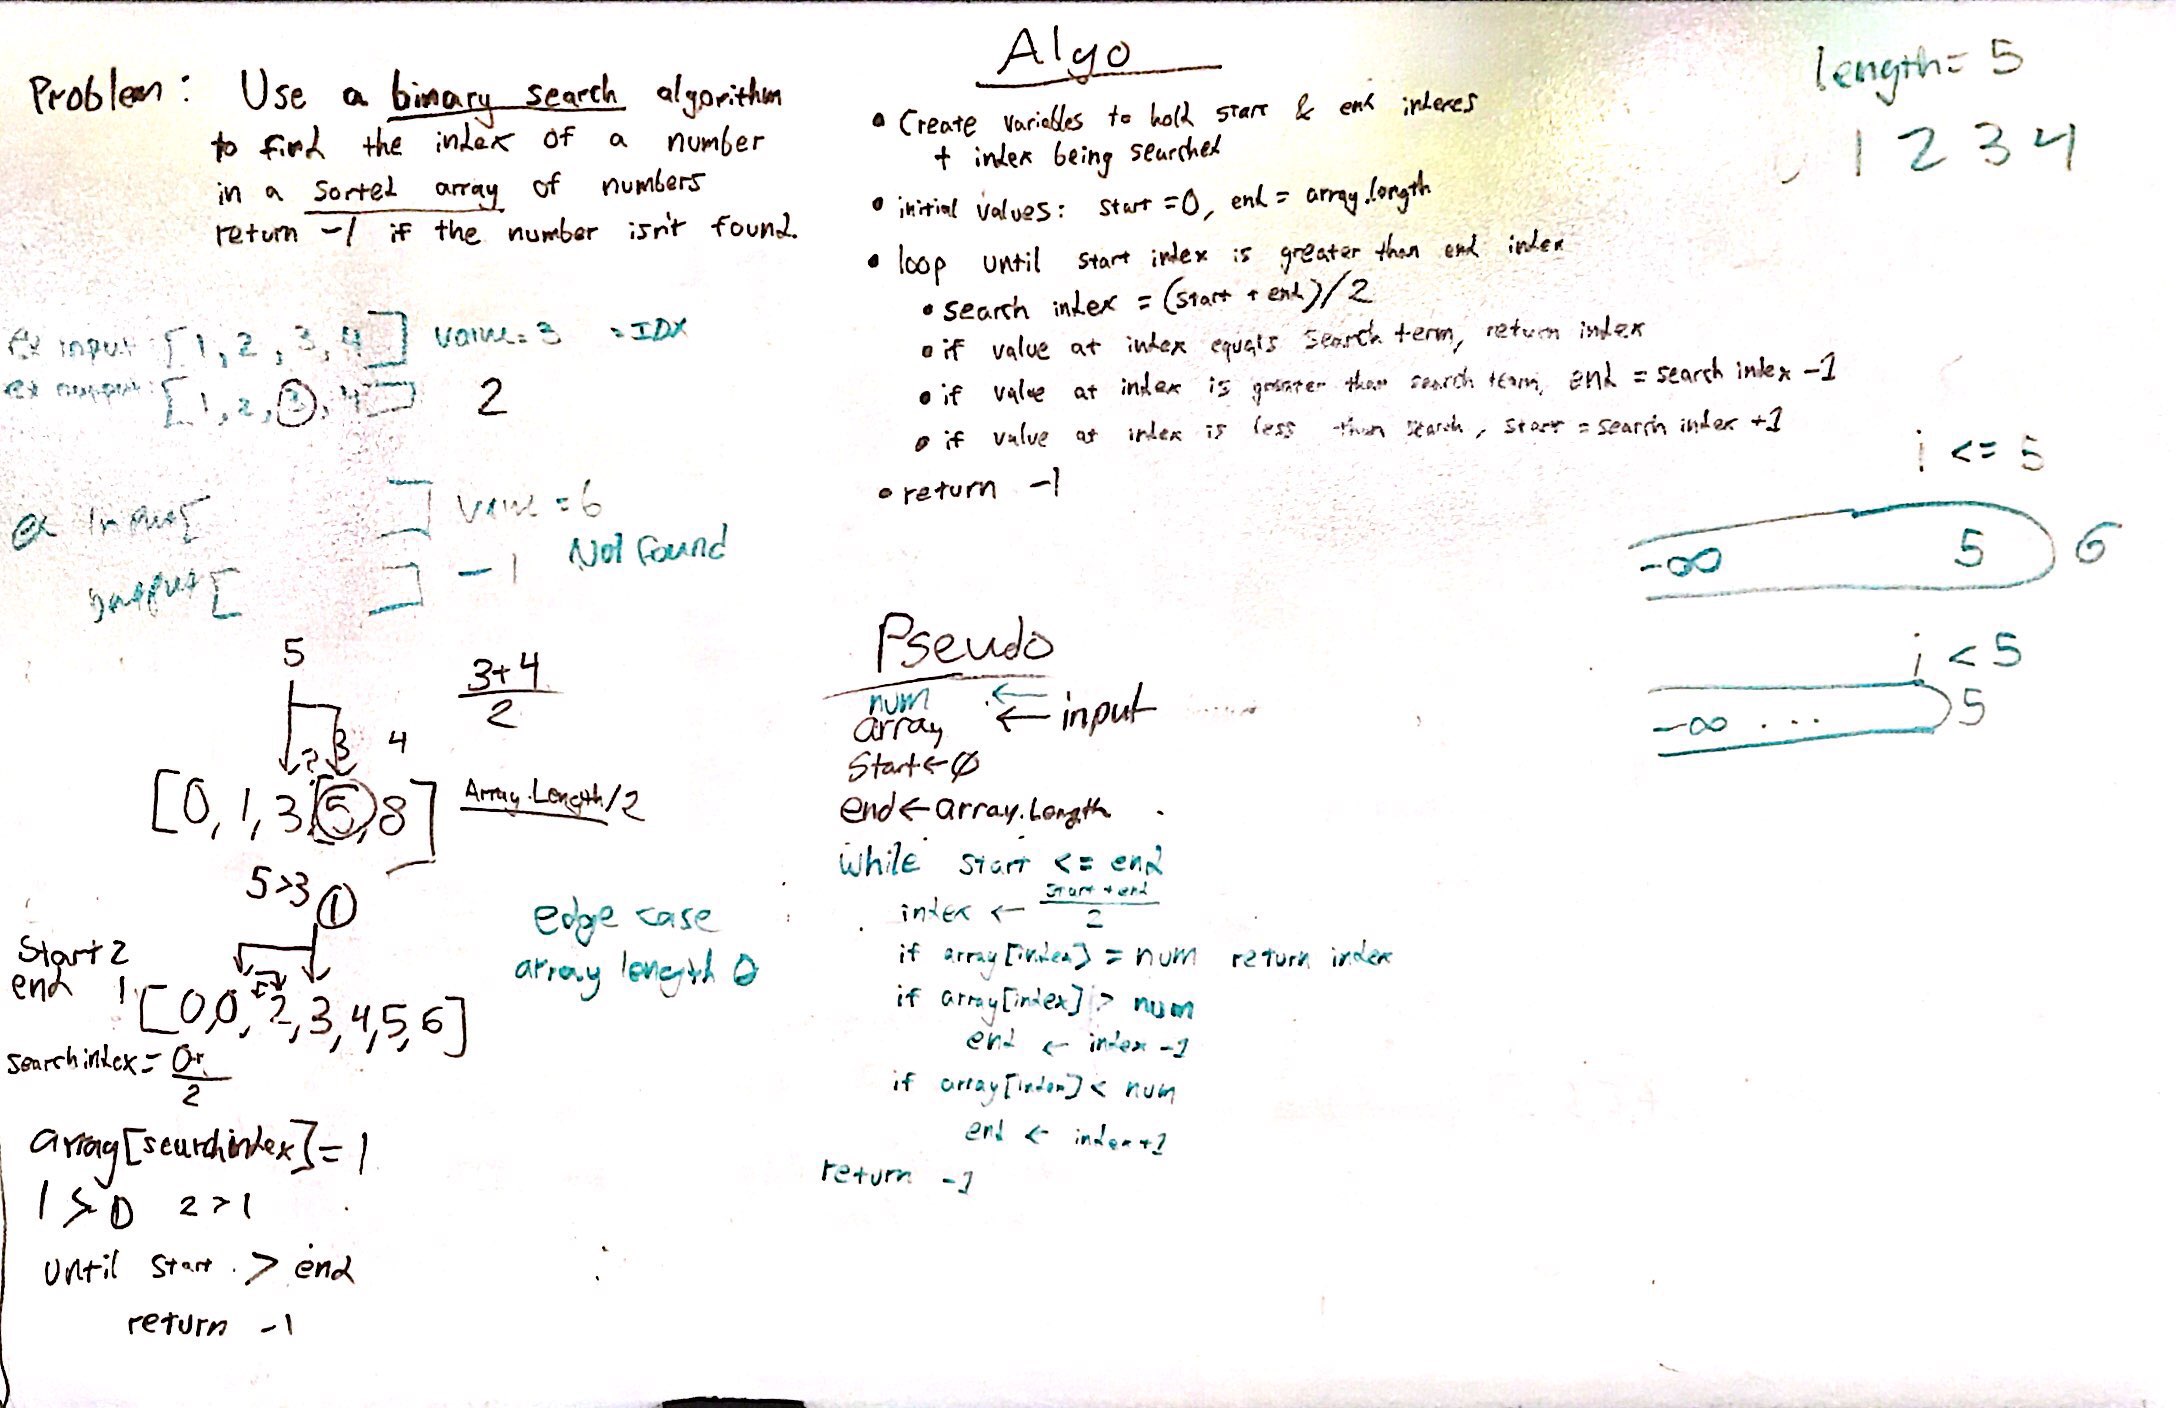 Problem: Use a binary search algorithm
to find the index of a number
in a sorted array of numbers
return -1 if the number isn't found.
ex input: [1, 2, 3, 4] value = 3 = IDX
[1, 2, 3, 4] 2
ex Input [ ] value = 6
Not Found
output [ ] -1
5
3+4
2
2 3 4
[0, 1, 3, 5, 8] Array.Length/2
5>3
1
edge case
array length 0
Start 2
end 1
[0, 0, 2, 3, 4, 5, 6]
searchindex = 0+
2
array[searchindex] = 1
2 > 1
until start > end
return -1
Algo
• Create variables to hold start & end indexes
+ index being searched
• initial values: start = 0, end = array.length
• loop until start index is greater than end index
• search index = (start + end)/2
• if value at index equals search term, return index
• if value at index is greater than search term, end = search index -1
• if value at index is less than search, start = search index +1
• return -1
Pseudo
num ←
array ← input
Start ← 0
end ← array.Length
while start <= end
index ← start + end
2
if array[index] = num return index
if array[index] > num
end ← index -1
if array[index] < num
end ← index +1
return -1
length = 5
1 2 3 4
i <= 5
-∞ 5 6
i < 5
-∞ ... 5